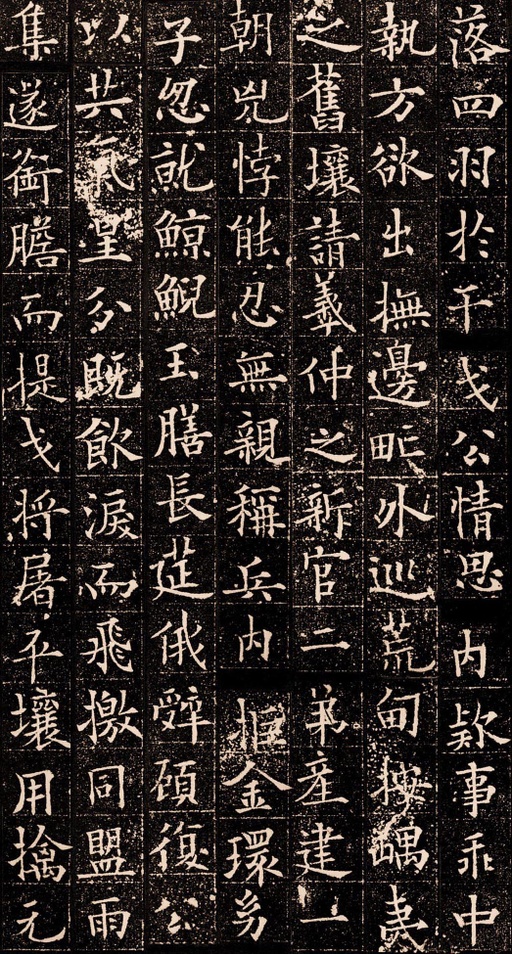 落四羽於干戈公情思内款事乖中
執方欲出撫邊甿外巡荒甸按嵎夷
之舊壤請羲仲之新官二弟産建一
朝兇悖能忍無親稱兵内拒金環幼
子忽就鯨鯢玉膳長筵俄辤顧復公
以共氣星分既飲淚而飛檄同盟雨
集遂銜膽而提戈將屠平壤用擒元